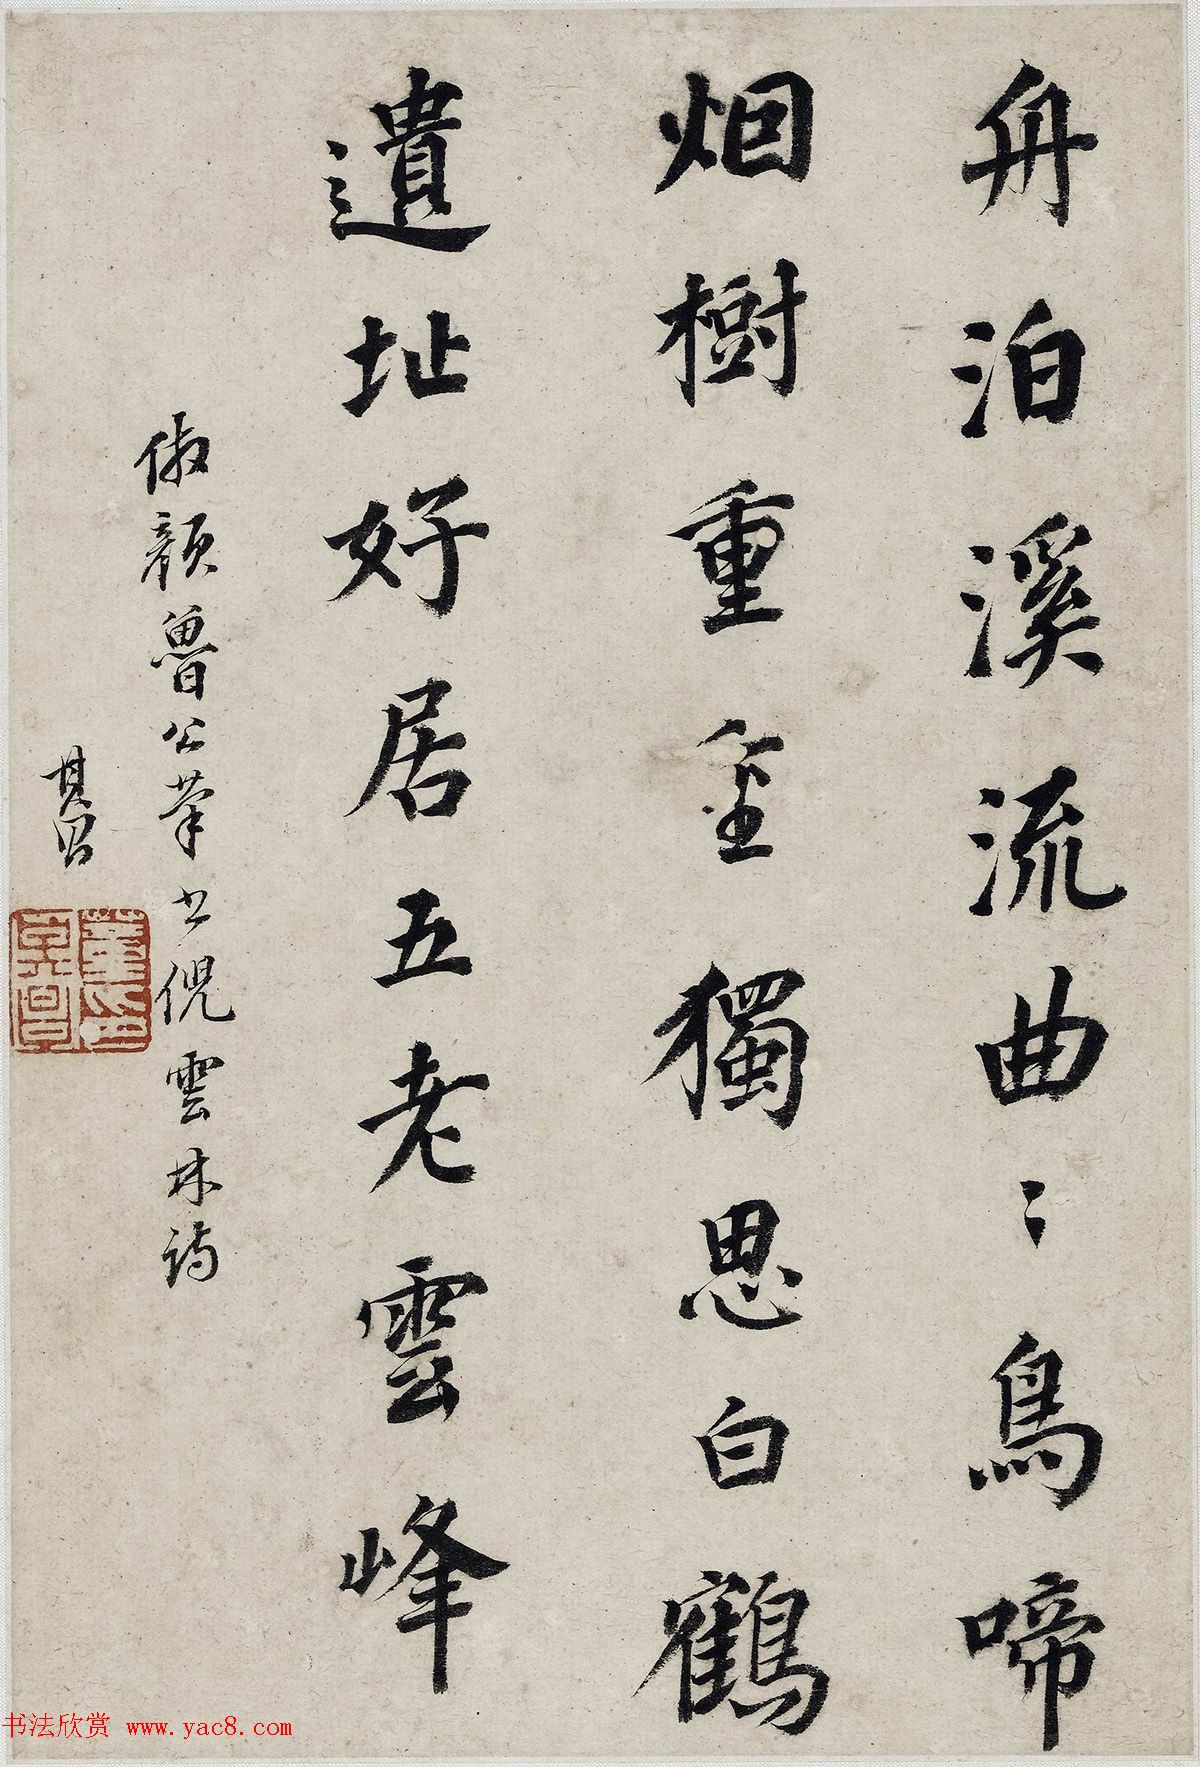 舟泊溪流曲〻鳥啼
烟樹重重獨思白鶴
遺址好居五老雲峰
倣顏魯公筆書倪雲林詩
其昌
董其昌印
书法欣赏 www.yac8.com